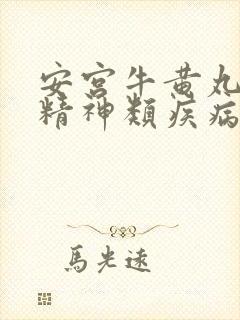 安宮牛黄丸
精神類疾病
馬光遠